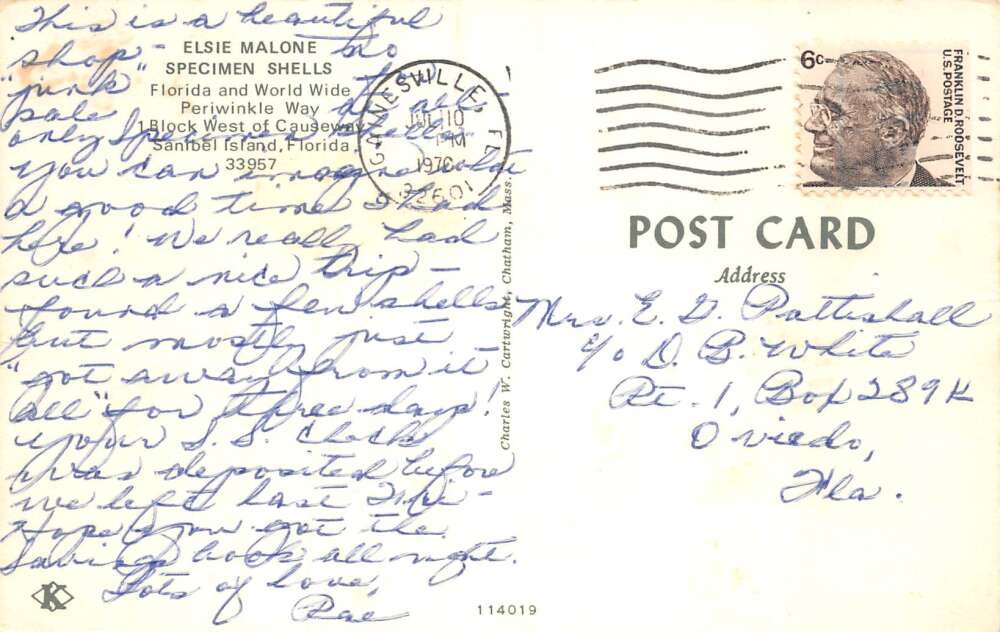 This is a beautiful
shop - no
"junk" for
sale at all -
only specimen shells.
You can imagine what
a good time I had
here! We really had
such a nice trip -
found a few shells
but mostly just
"got away from it
all" for three days!
Your S.S. check
was deposited before
we left last Fri -
Hope you got the
savings book all right.
Lots of love,
Rae
ELSIE MALONE
SPECIMEN SHELLS
Florida and World Wide
Periwinkle Way
1 Block West of Causeway
Sanibel Island, Florida
33957
GAINESVILLE, FL
JUL 10
PM
1970
32601
6c
FRANKLIN D. ROOSEVELT
U.S. POSTAGE
POST CARD
Address
Mrs. E. G. Pattishall
c/o D. B. White
Rt. 1, Box 289K
Oviedo,
Fla.
Charles W. Cartwright, Chatham, Mass.
K
114019